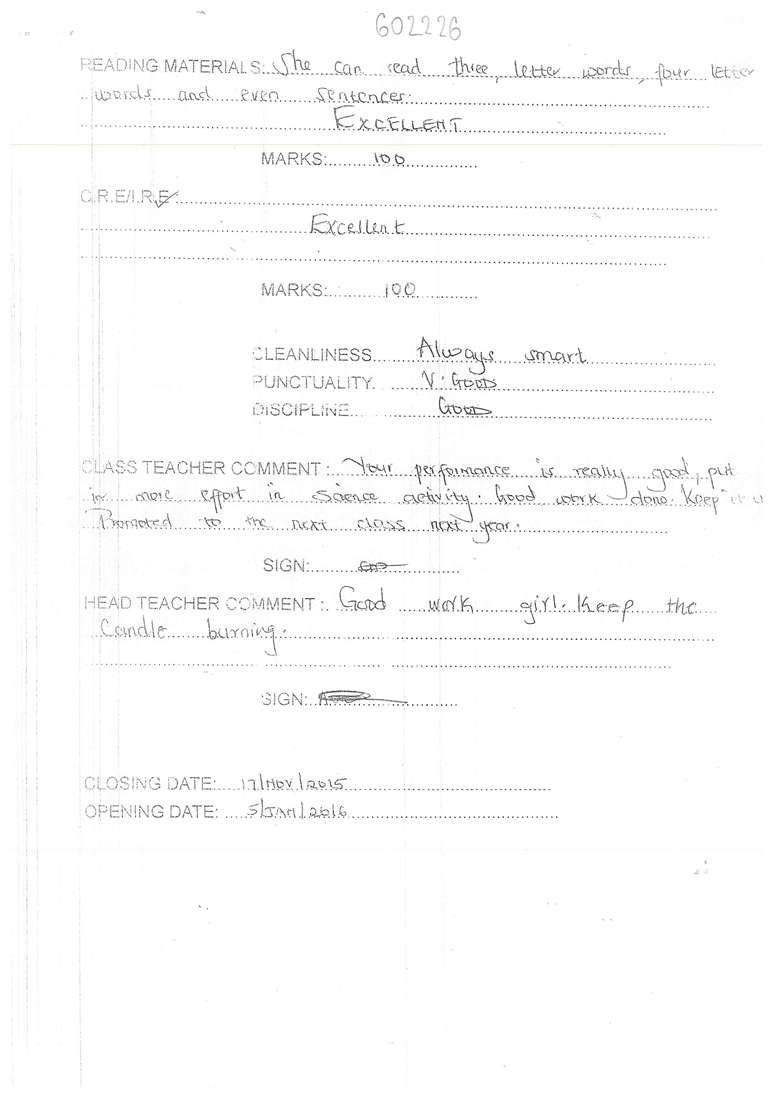 602226
READING MATERIALS: She can read three, letter words, four letter
words and even sentences.
EXCELLENT
MARKS: 100
C.R.E/I.R.E
Excellent
MARKS: 100
CLEANLINESS Always smart
PUNCTUALITY. V. GOOD
DISCIPLINE GOOD
CLASS TEACHER COMMENT: Your performance is really good, put
in more effort in science activity. Good work done. Keep it u
Promoted to the next class next year.
SIGN:
HEAD TEACHER COMMENT: Good work girl. Keep the
Candle burning.
SIGN:
CLOSING DATE: 17/NOV/2015
OPENING DATE: 5/JAN/2016